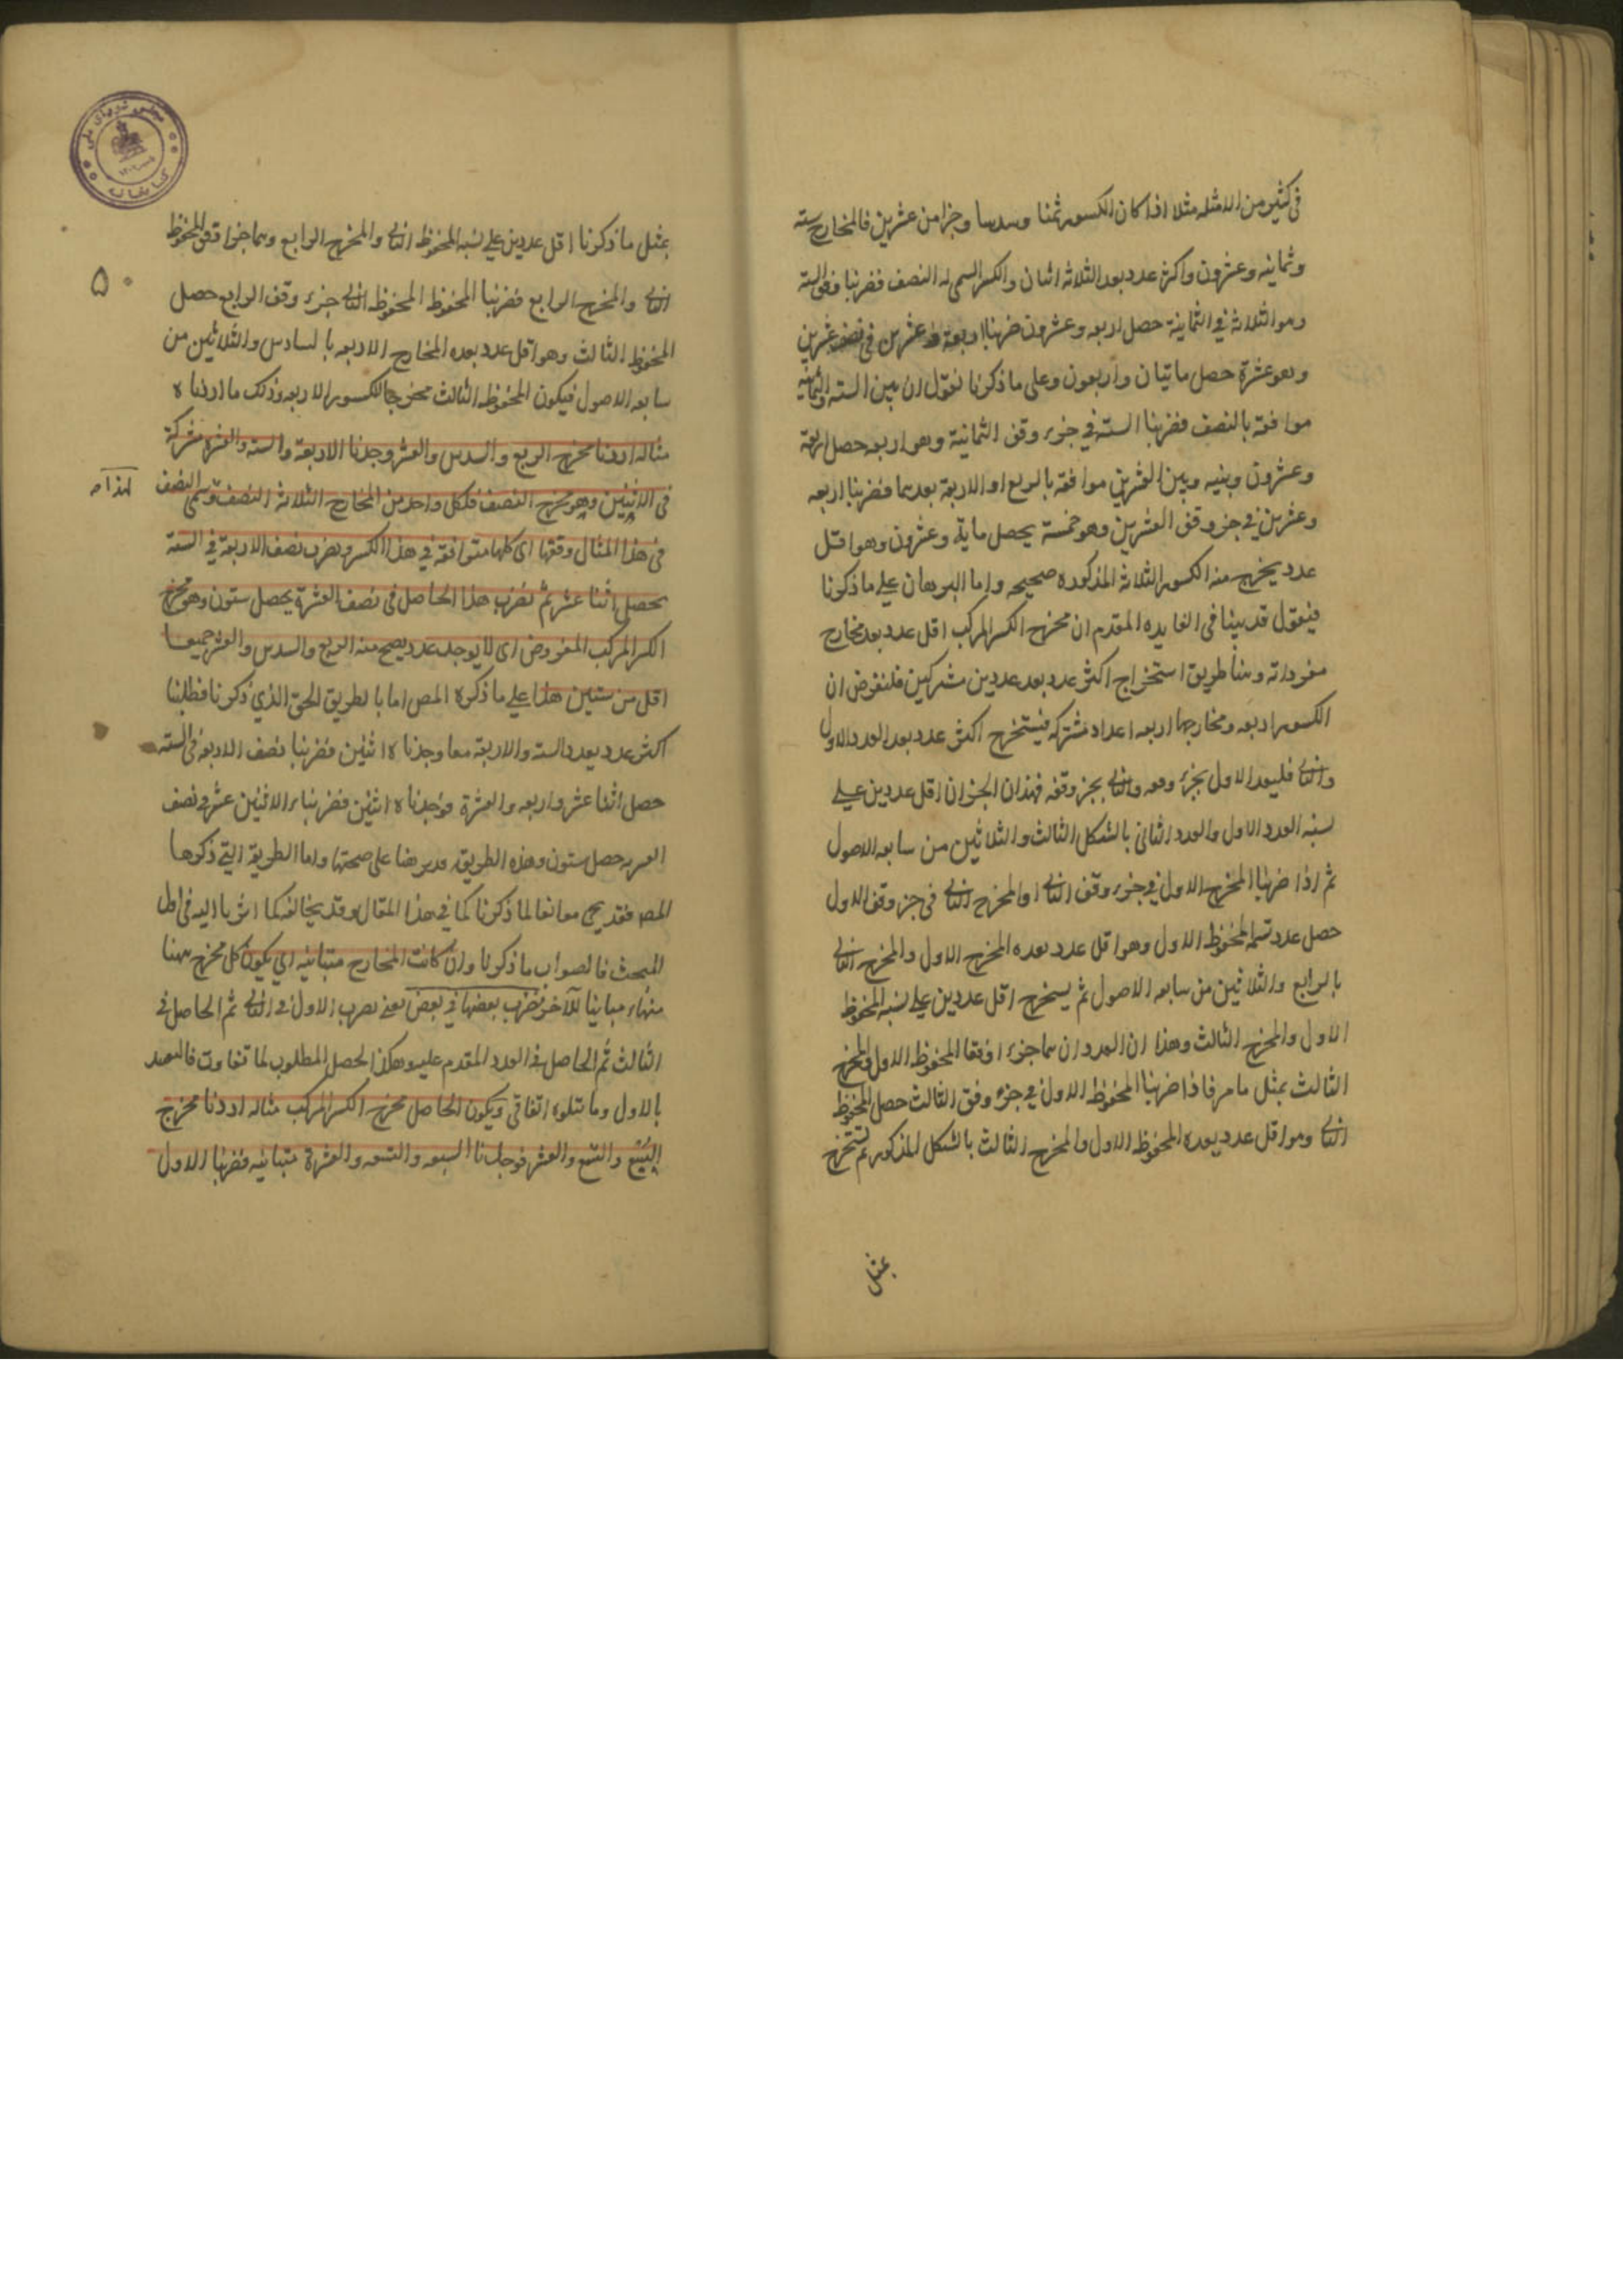 فى كثير من الامثله مثلا اذا كان الكسور ثمنا وسدسا وجزا من عشرين فالمخارج سته
وثمانيه وعشرون واكثر عدد يعد الثلاثه اثنان والكسر السمى له النصف فضربنا وفق السته
وهو الثلاثة فى الثمانية حصل اربعه وعشرون ضربنا اربعة وعشرين فى نصف عشرين
وهو عشرة حصل ماتيان واربعون وعلى ما ذكرنا نقول ان بين السته والثمانيه
موافقة بالنصف فضربنا الستة في جزء وفق الثمانية وهو اربعه حصل اربعة
وعشرون وبينه وبين العشرين موافقه بالربع اذ الاربعة يعدهما فضربنا اربعه
وعشرين في جزء وفق العشرين وهو خمسة يحصل مايه وعشرون وهو اقل
عدد يخرج منه الكسور الثلاثه المذكوره صحيحه واما البرهان علے ما ذكرنا
فنقول قد بينا فى الفايده المقدم ان مخرج الكسر المركب اقل عدد يعد مخارج
مفرداته وبينا طريق استخراج اكثر عدد يعد عددين مشتركين فلنفرض ان
الكسور اربعه ومخارجها اربعه اعداد مشتركه فيستخرج اكثر عدد يعد العدد الاول
والثانى فليعد الاول بجزء وفقه والثانى بجزء وفقه فهذان الجزءان اقل عددين علے
نسبه العدد الاول والعدد الثانى بالشكل الثالث والثلاثين من سابعه الاصول
ثم اذا ضربنا المخرج الاول فى جزء وفق الثانى او المخرج الثانى فى جزء وفق الاول
حصل عدد نسمه المحفوظ الاول وهو اقل عدد يعده المخرج الاول والمخرج الثانى
بالرابع والثلاثين من سابعه الاصول ثم يستخرج اقل عددين علے نسبه المحفوظ
الاول والمخرج الثالث وهذا ان العددان هما جزءا وفقا المحفوظ الاول والمخرج
الثالث بمثل ما مر فاذا ضربنا المحفوظ الاول فى جزء وفق الثالث حصل المحفوظ
الثانى وهو اقل عدد يعده المحفوظ الاول والمخرج الثالث بالشكل المذكور ثم نستخرج
بمثل
بمثل ما ذكرنا اقل عددين علے نسبه المحفوظ الثانى والمخرج الرابع وهما جزءا وفق المحفوظ
الثانى والمخرج الرابع فضربنا المحفوظ المحفوظ الثانى جزء وفق الرابع حصل
۵۰
المحفوظ الثالث وهو اقل عدد يعده المخارج الاربعه بالسادس والثلاثين من
سابعه الاصول فيكون المحفوظ الثالث مخرجا لكسور الاربعه وذلك ما اردناه
مثاله اردنا مخرج الربع والسدس والعشر وجدنا الاربعة والسته والعشره مشتركة
فى الاثنين وهو مخرج النصف فلكل واحد من المخارج الثلاثة النصف وسمى النصف
لهذا
فى هذا المثال وفقها اى كلها متوافقه في هذا الكسر وضرب نصف الاربعة في الستة
يحصل اثنا عشر ثم نضرب هذا الحاصل فى نصف العشرة يحصل ستون وهو مخرج
الكسر المركب المفروض اى لا يوجد عدد يصح منه الربع والسدس والعشر جميعا
اقل من ستين هذا علے ما ذكره المص اما بالطريق الحق الذي ذكرنا فطلبنا
اكثر عدد يعد السته والاربعة معا وجدناه اثنين فضربنا نصف الاربعة فى السته
حصل اثنا عشر واربعه والعشرة فوجدناه اثنين فضربنا الاثنين عشر فى نصف
العشره حصل ستون وهذه الطريق مبرهنا على صحتها واما الطريقة التي ذكرها
المص فقد يجئ موافقا لما ذكرنا كما فى هذا المثال وقد يخالفه كما اشرنا اليه فى اول
المبحث فالصواب ما ذكرنا وان كانت المخارج متباينه اي يكون كل مخرج ههنا
منها مباينا للآخر نضرب بعضها في بعض يعنى نضرب الاول فى الثانى ثم الحاصل فى
الثالث ثم الحاصل فى العدد المقدم عليه وهكذا لحصل المطلوب لما تفاوت فالبعد
بالاول وما يتلوه اتفاقى ويكون الحاصل مخرج الكسر المركب مثاله اردنا مخرج
السبع والتسع والعشر فوجدنا السبعه والتسعه والعشرة متباينه فضربنا الاول